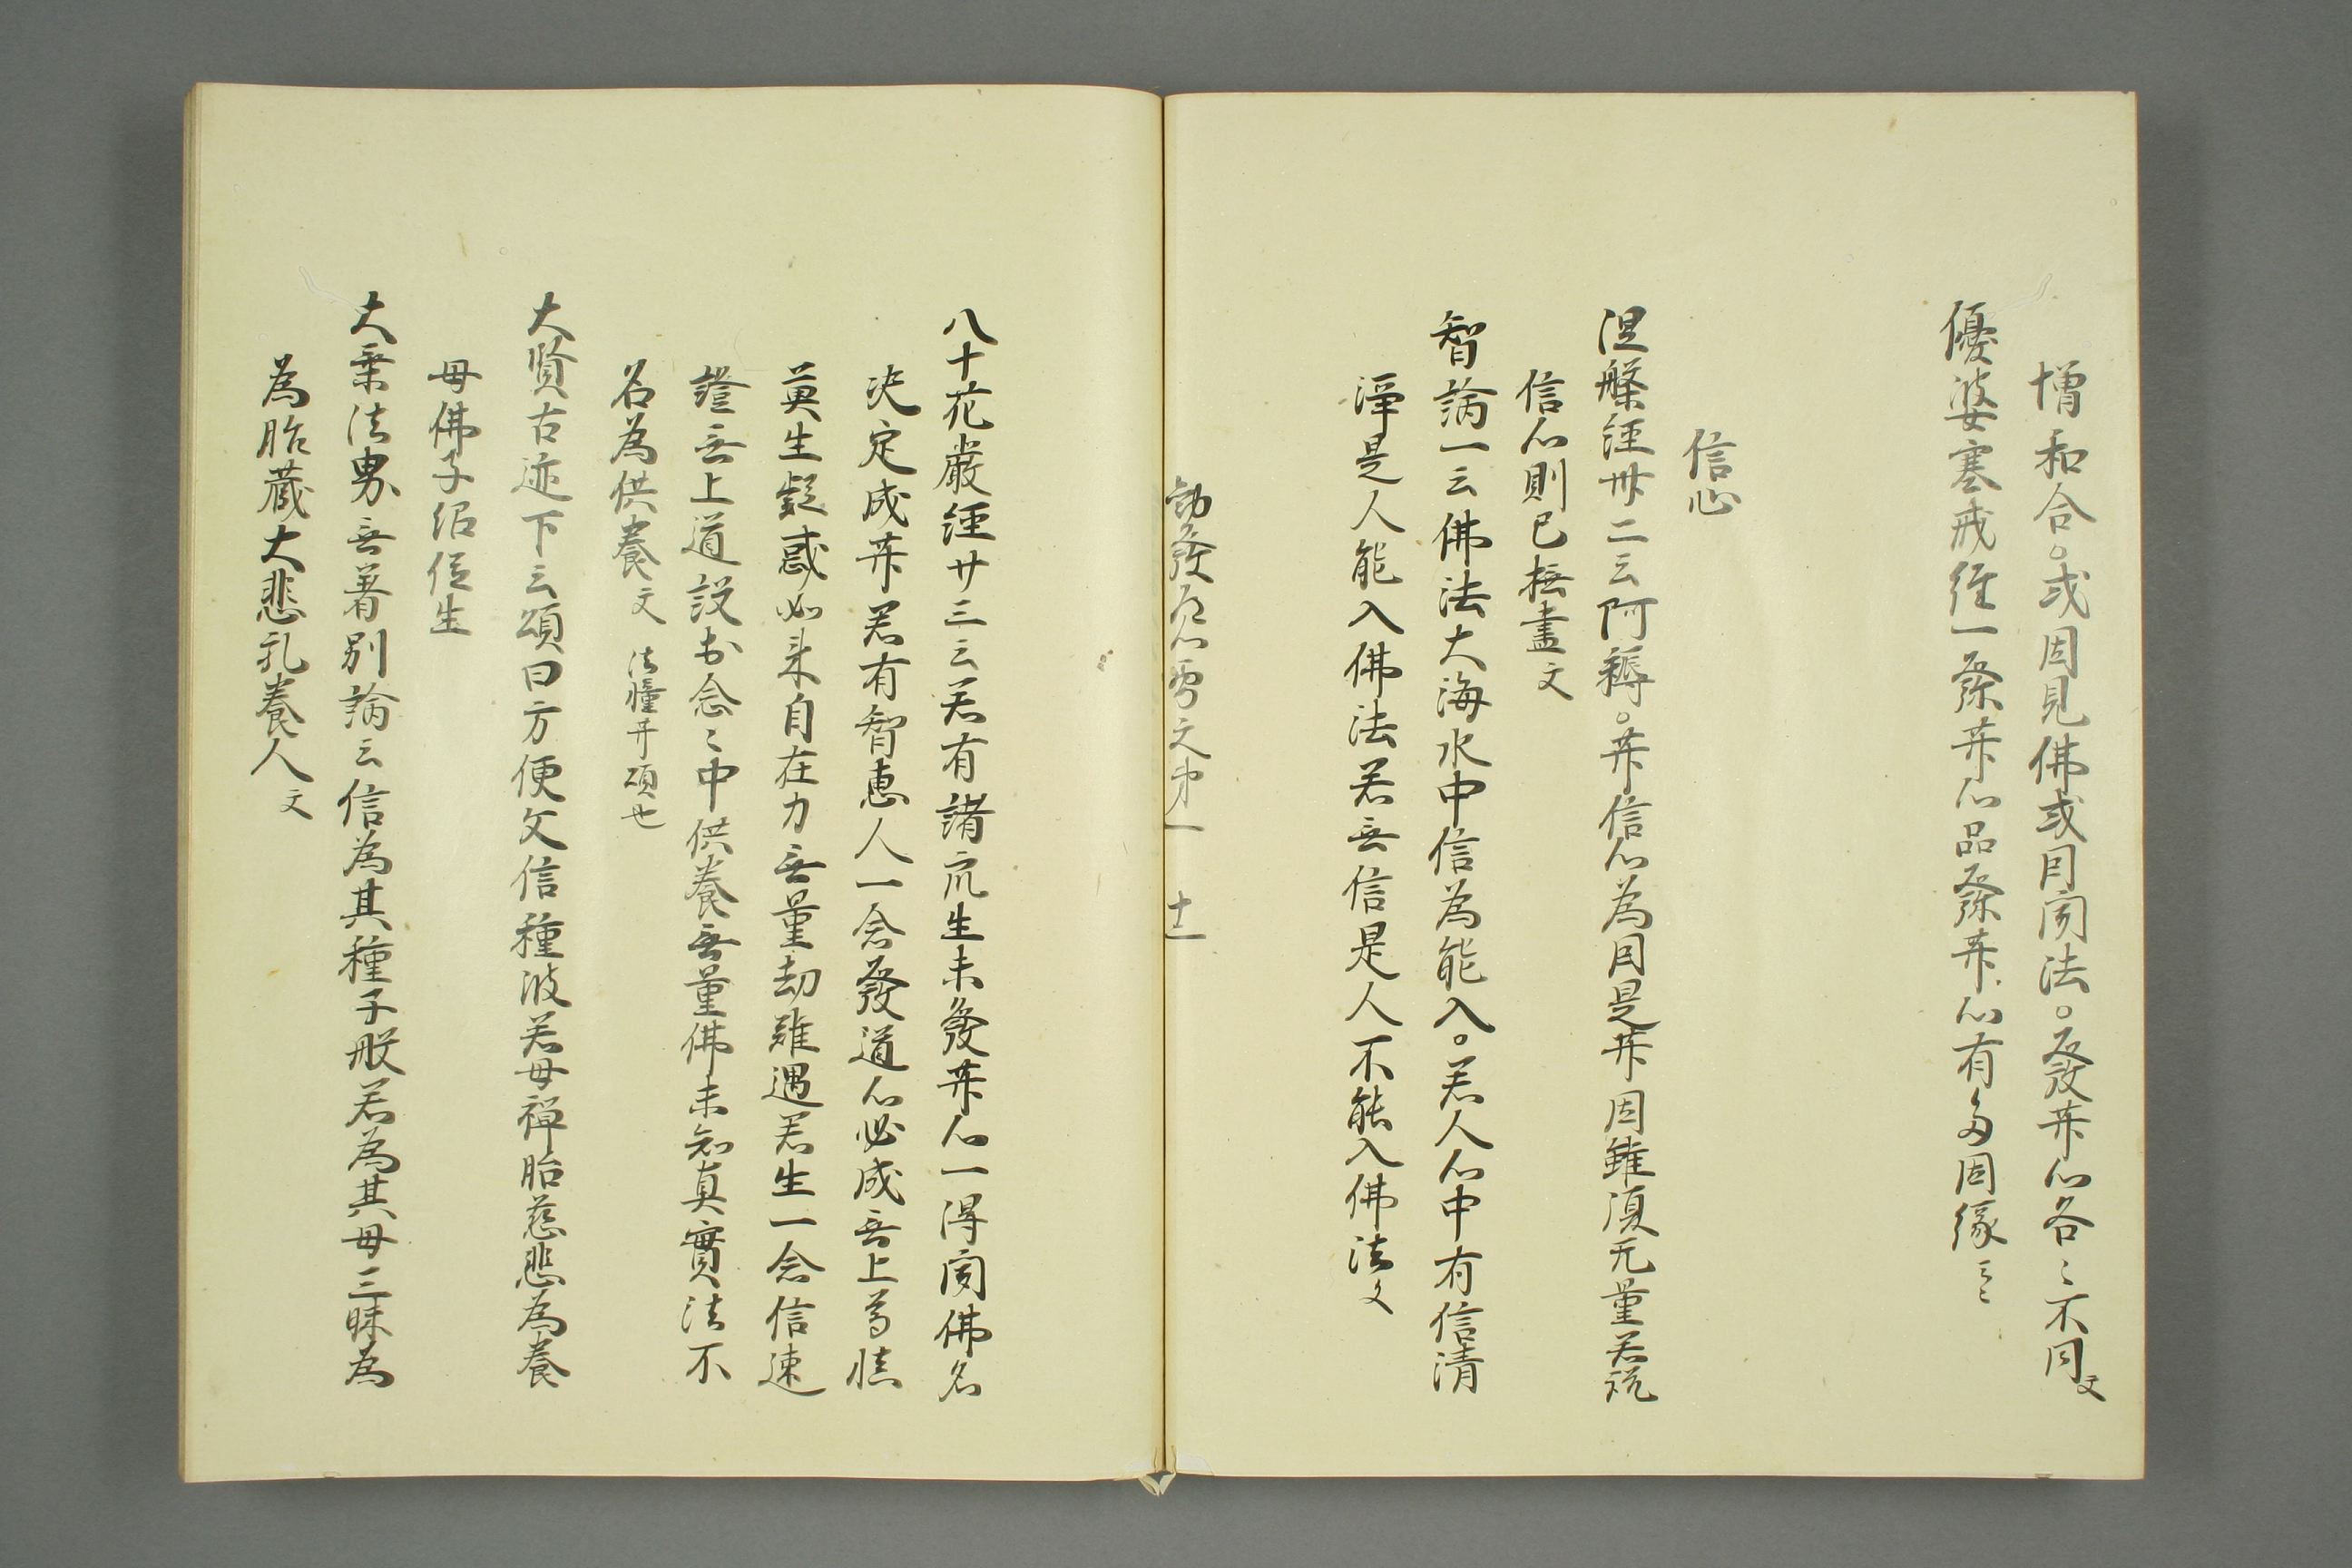 憎和合。或因見佛或因聞法。發𦬇心各〻不同文
優婆塞戒経一發𦬇心品發𦬇心有多因縁云〻
信心
涅槃経卅二云阿耨。𦬇信心為因是𦬇因雖須无量若説
信心則已摂盡文
智論一云佛法大海水中信為能入。若人心中有信清
淨是人能入佛法若無信是人不能入佛法文
勧發 心 文第一 十一
八十花厳経廿三云若有諸衆生未發𦬇心一得聞佛名
決定成𦬇若有智恵人一念發道心必成無上尊慎
莫生疑惑如来自在力無量劫難遇若生一念信速
證無上道設於念〻中供養無量佛未知真實法不
名為供養文 法幢𦬇頌也
大賢古迹下云頌曰方便父信種波若母禅胎慈悲為養
母佛子紹位生
大乗法界無著別論云信為其種子般若為其母三昧為
為胎蔵大悲乳養人文